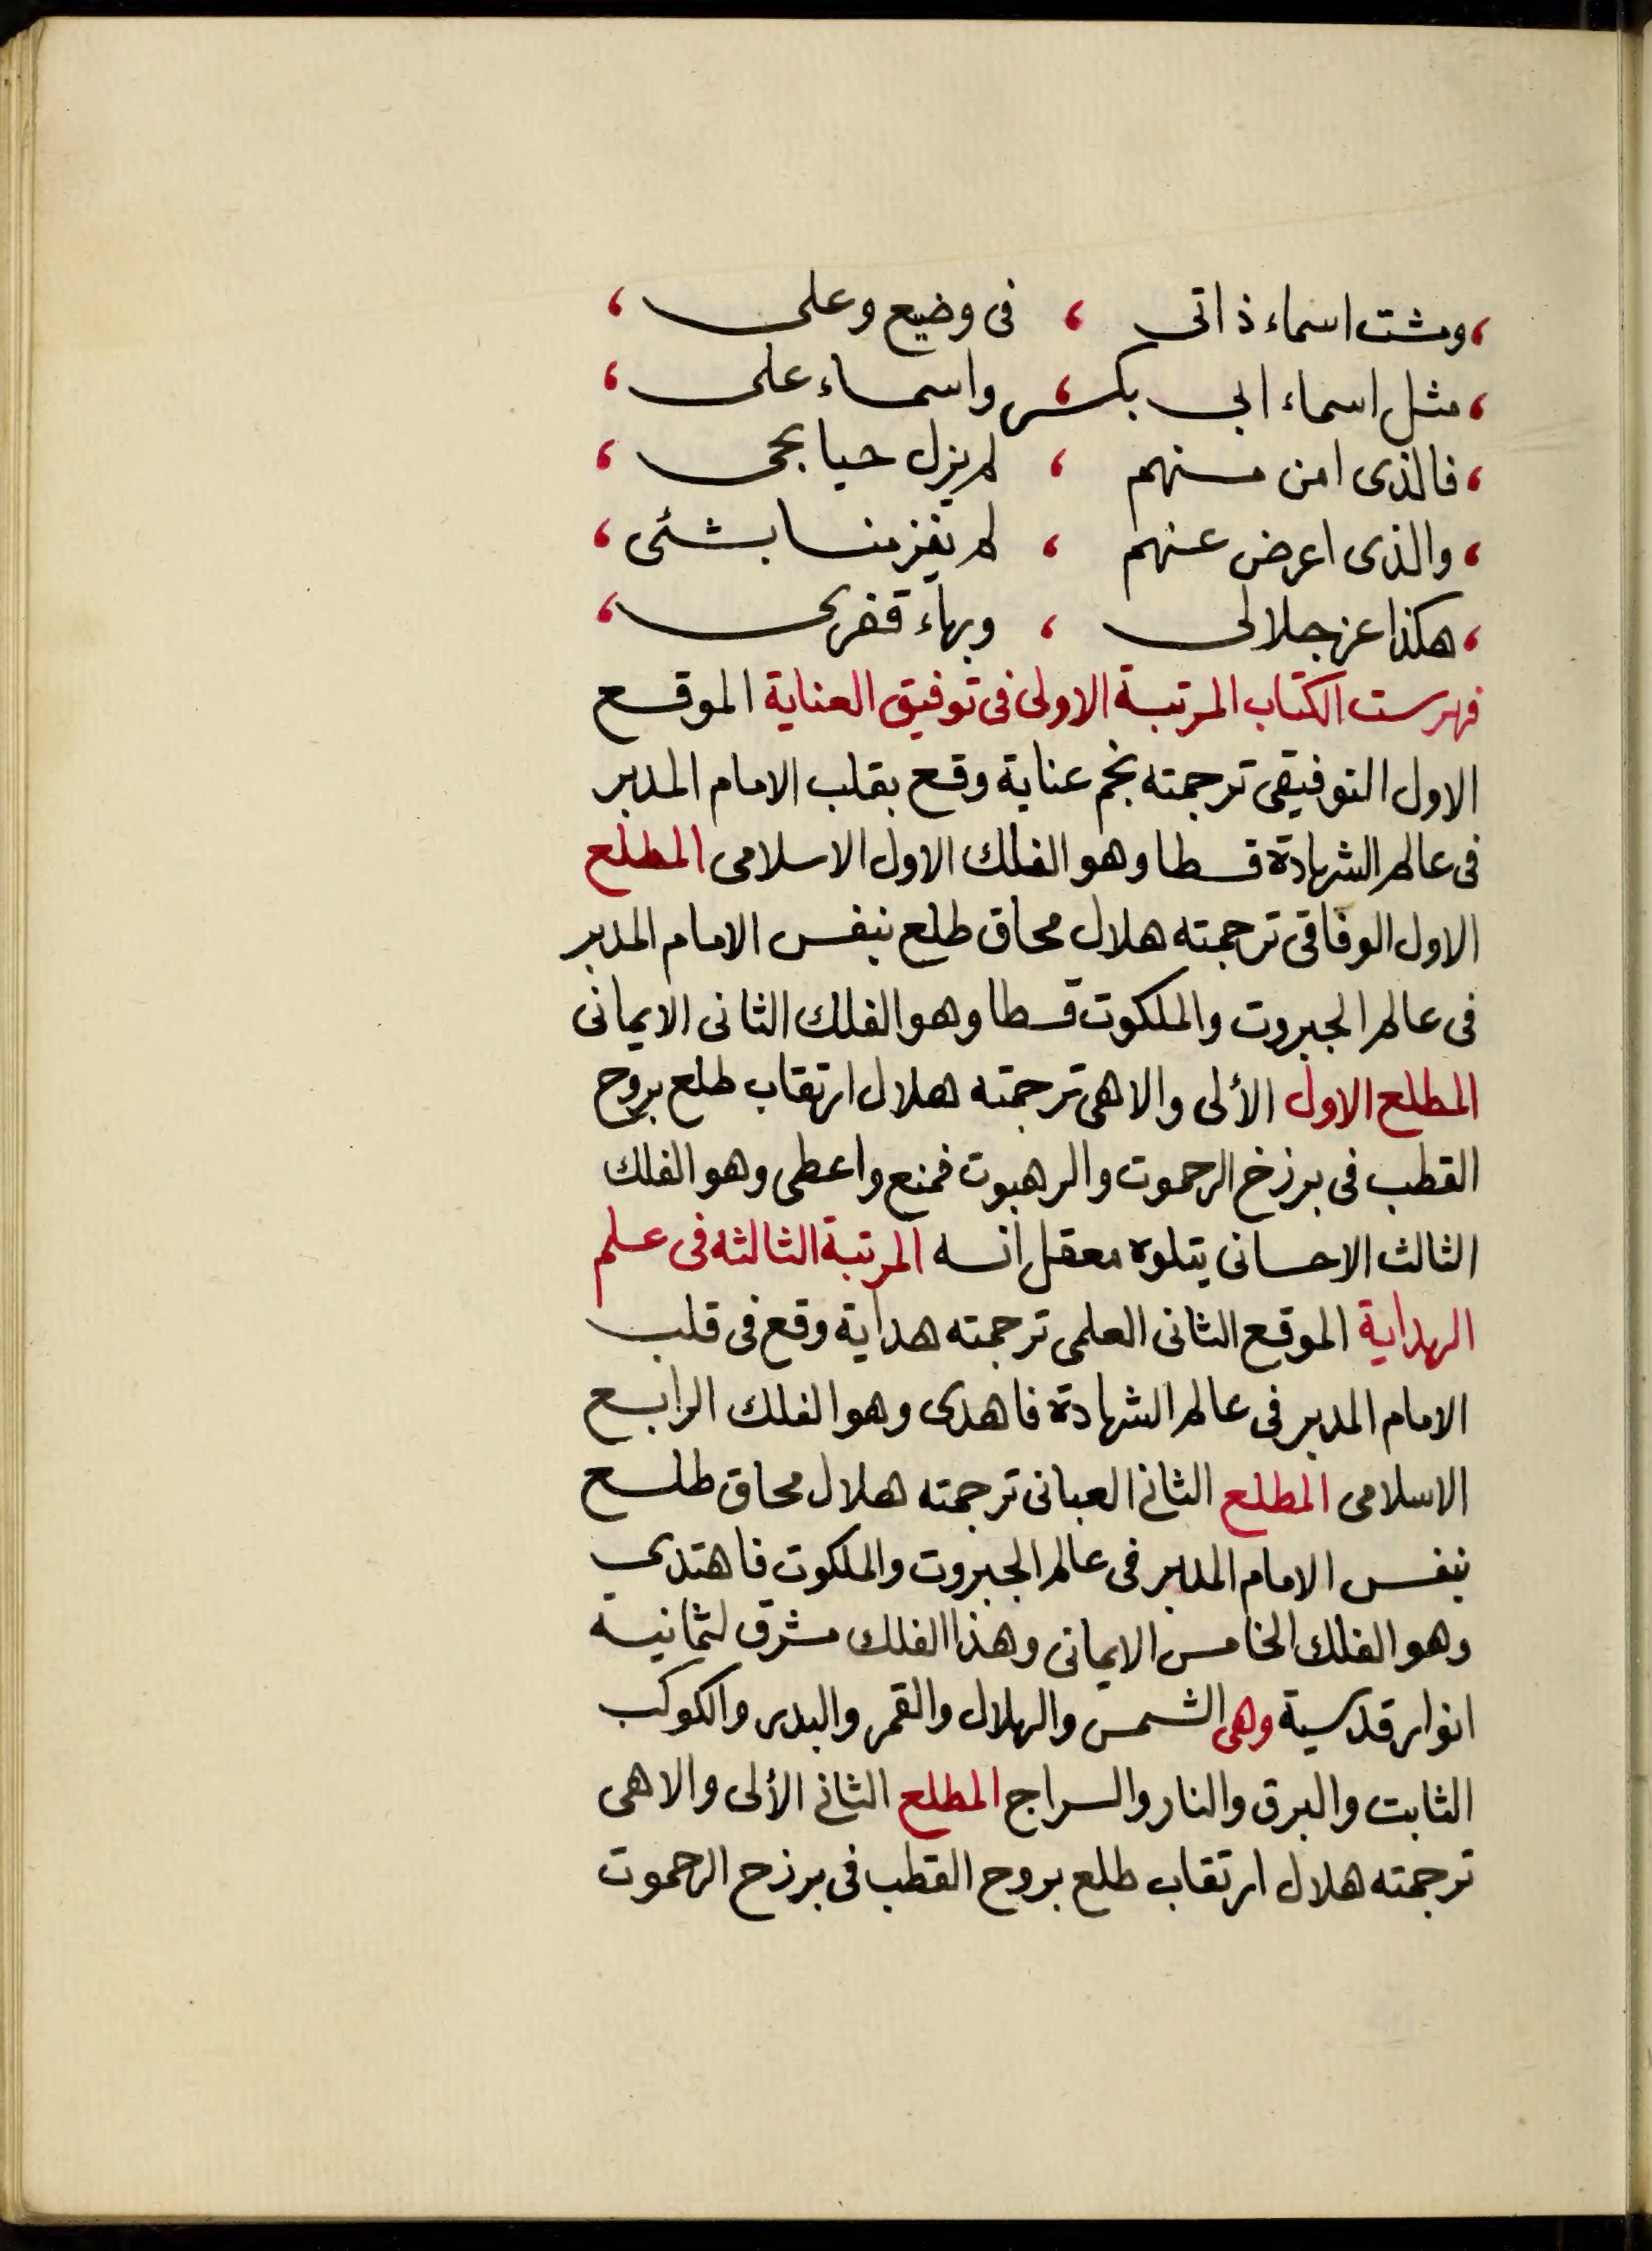 ، ومشت اسماء ذاتى ، فى وضيع وعلى ،
، مثل اسماء ابى بكر ، واسماء على ،
، فالذى امن منهم ، لم يزل حيا بحى ،
، والذى اعرض عنهم ، لم يفز منا بشئى ،
، هكذا عز جلالى ، وبهاء قفربحى ،
فهرست الكتاب المرتبة الاولى فى توفيق العناية الموقع
الاول التوفيقى ترجمته نجم عناية وقع بقلب الامام المدبر
فى عالم الشهادة قسطا وهو الفلك الاول الاسلامى المطلع
الاول الوفاقى ترجمته هلال محاق طلع بنفس الامام المدبر
فى عالم الجبروت والملكوت قسطا وهو الفلك الثانى الايمانى
المطلع الاول الألى والاهى ترجمته هلال ارتقاب طلع بروح
القطب فى برزخ الرحموت والرهبوت فمنع واعطى وهو الفلك
الثالث الاحسانى يتلوه معقل انسه المرتبة الثالثه فى علم
الهداية الموقع الثانى العلمى ترجمته هداية وقع فى قلب
الامام المدبر فى عالم الشهادة فاهدى وهو الفلك الرابع
الاسلامى المطلع الثانى العبانى ترجمته هلال محاق طلع
بنفس الامام المدبر فى عالم الجبروت والملكوت فاهتدى
وهو الفلك الخامس الايمانى وهذا الفلك مشرق لثمانية
انوار قدسية وهى الشمس والهلال والقمر والبدر والكوكب
الثابت والبرق والنار والسراج المطلع الثانى الألى والاهى
ترجمته هلال ارتقاب طلع بروح القطب فى برزح الرحموت